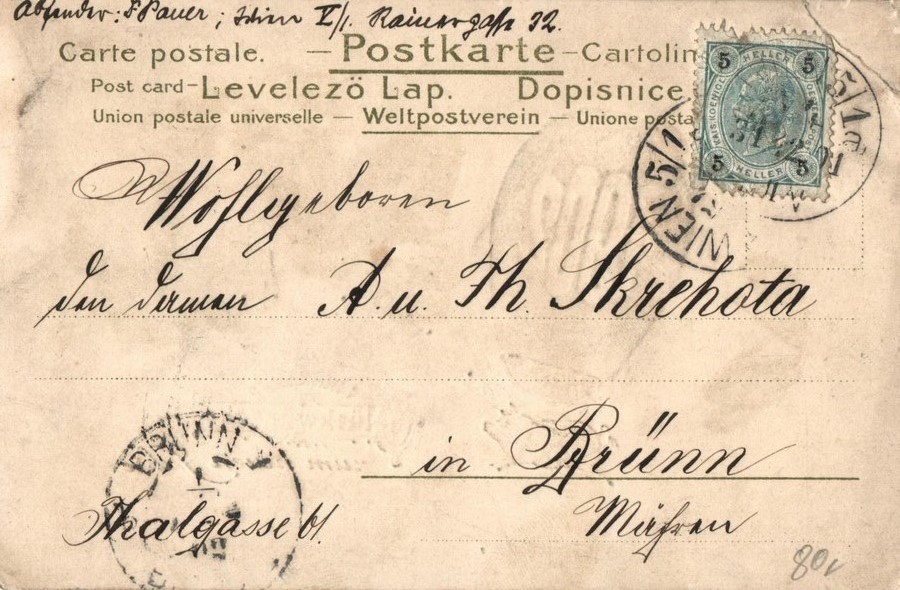 Absender: F Pauer; Wien V/1. Rainergasse 32.
Carte postale. — Postkarte – Cartolin
Post card – Levelező Lap. Dopisnice
Union postale universelle — Weltpostverein — Unione posta
5 HELLER 5
5 HELLER 5
WIEN 5/1
5/1
Wohlgeboren
den Damen A. u. Th. Skrehota
in Brünn
BRÜNN
Thalgasse 61.
Mähren
80,